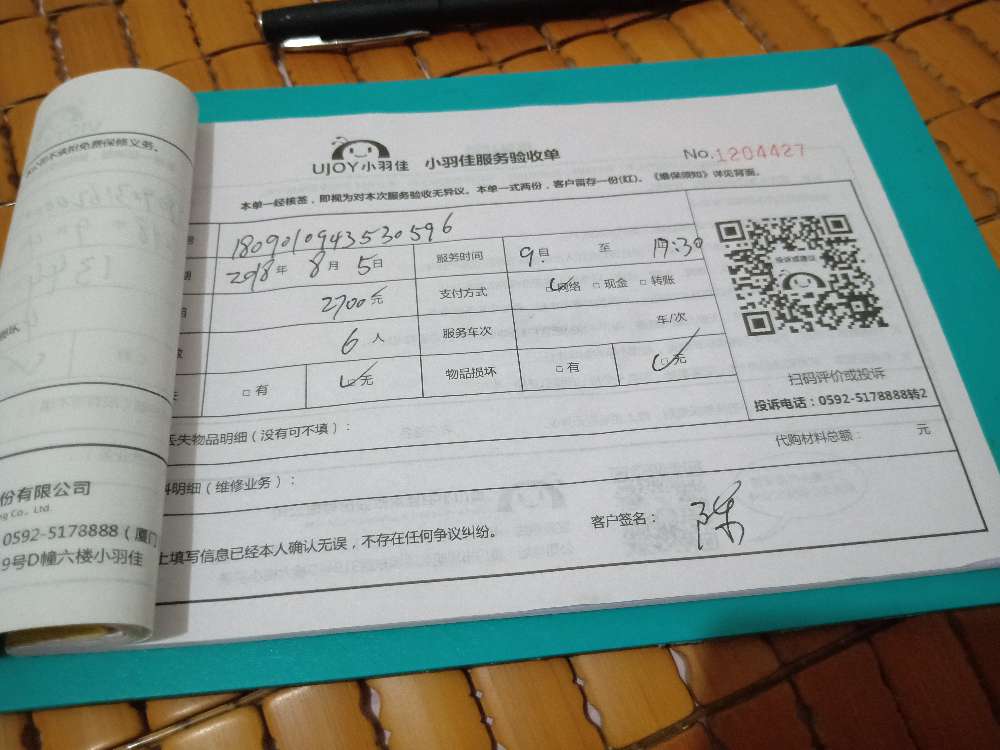 UJOY小羽佳 小羽佳服务验收单 No.1204427
本单一经核签，即视为对本次服务验收无异议。本单一式两份，客户留存一份(红)。《维保须知》详见背面。
号 180901094353059​6
期 2018年 8月 5日 服务时间 9 至 17:30
2700元 支付方式 □网络 □现金 □转账
数 6人 服务车次 车/次
□有 □无 物品损坏 □有 □无
投诉或建议
扫码评价或投诉
投诉电话：0592-5178888转2
丢失物品明细（没有可不填）：
代购材料总额： 元
料明细（维修业务）：
上填写信息已经本人确认无误，不存在任何争议纠纷。 客户签名： 陈
UJOY
免费保修义务。
份有限公司
ng Co., Ltd.
0592-5178888（厦门
9号D幢六楼小羽佳